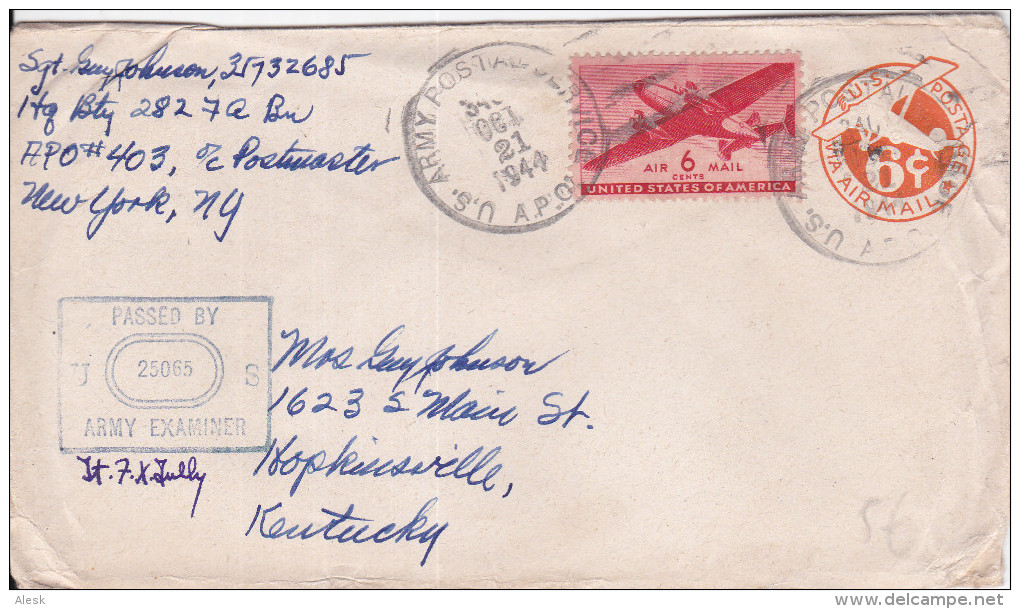 Sgt. Guy Johnson, 35732685
Hq Bty 282 FA Bn
APO #403, c/o Postmaster
New York, NY
ARMY POSTAL SERVICE
OCT
21
1944
U.S. A.P.O.
6
CENTS
AIR MAIL
UNITED STATES OF AMERICA
U.S. POSTAGE
6¢
VIA AIR MAIL
U.S. A.P.O.
PASSED BY
U 25065 S
ARMY EXAMINER
Lt. F. X. Tully
Mrs Guy Johnson
1623 S Main St.
Hopkinsville,
Kentucky
56
Alesk
delcampe.net